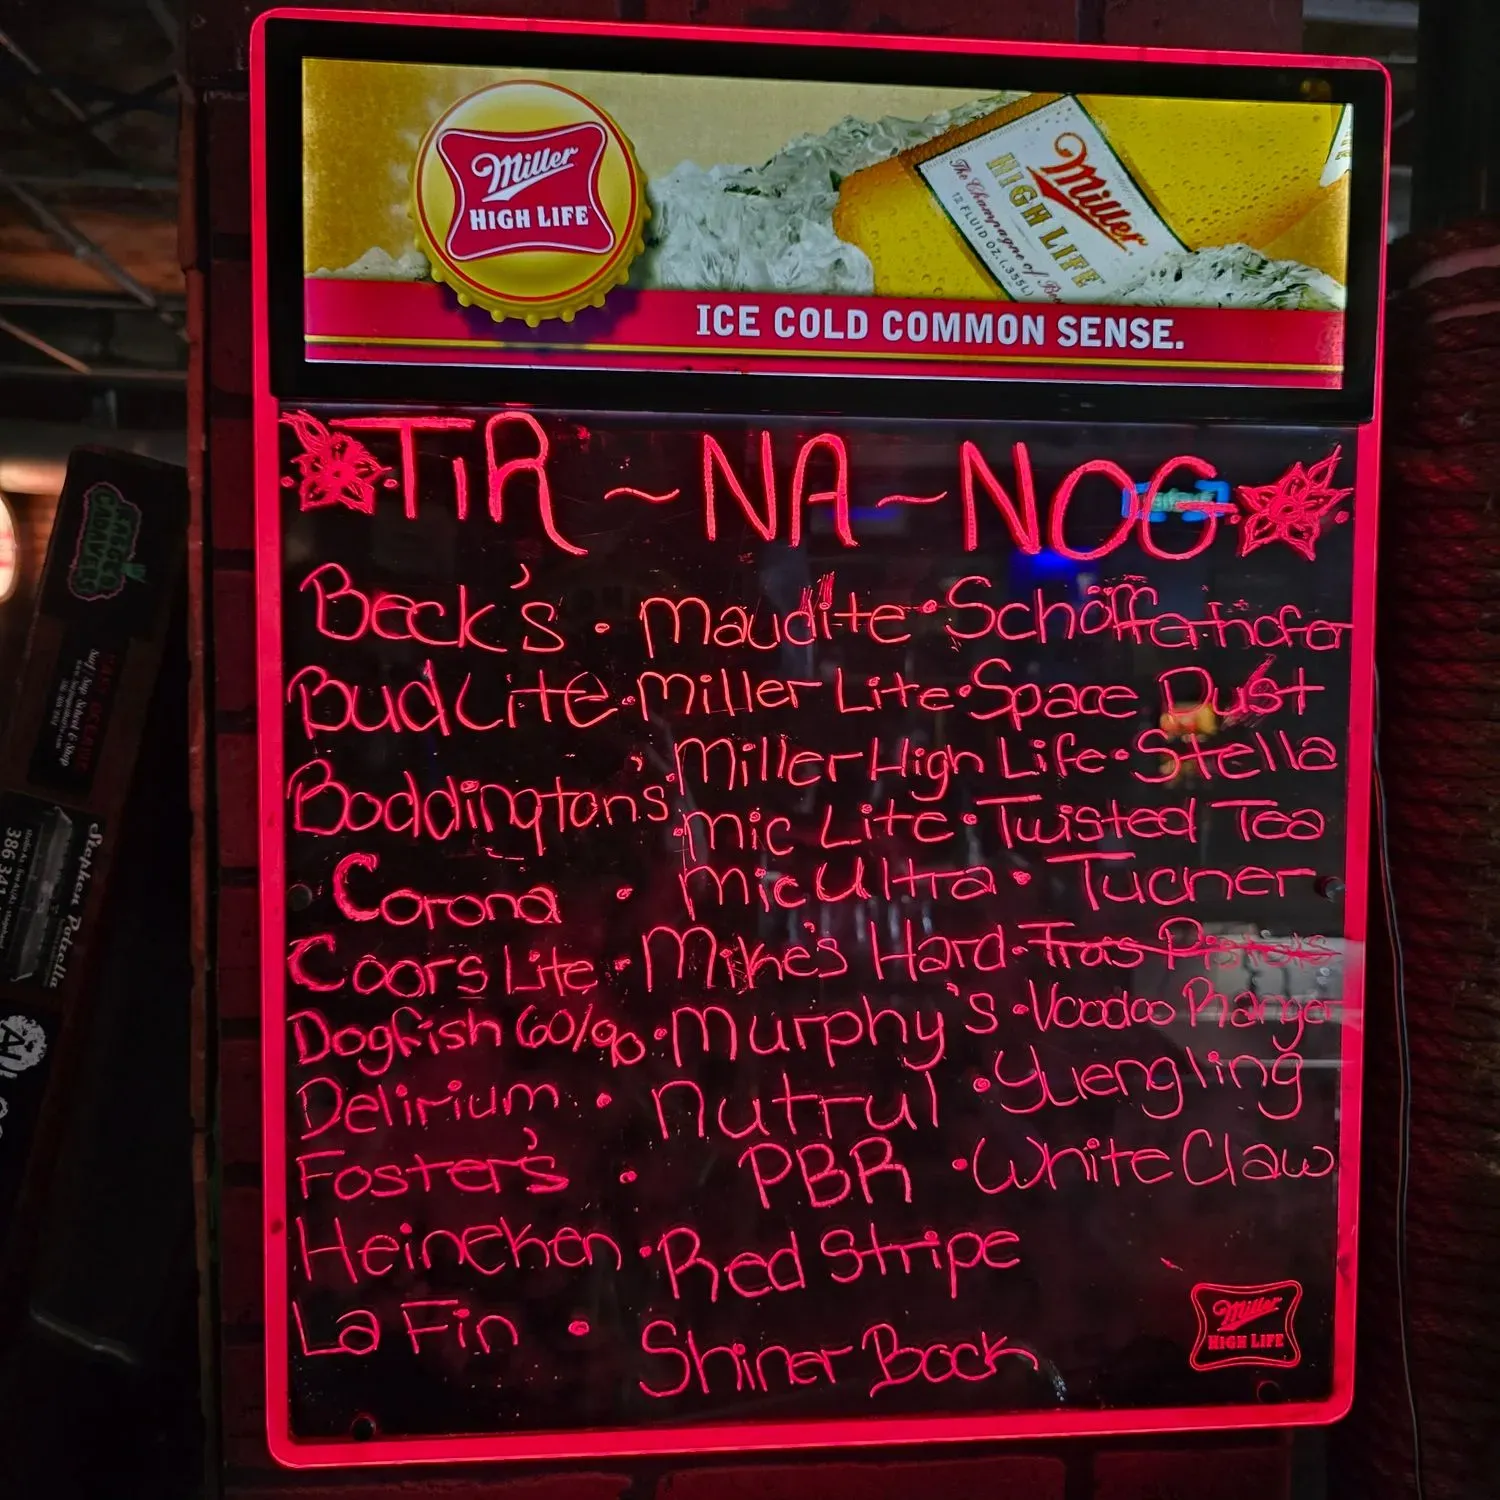 Miller
HIGH LIFE
Miller
HIGH LIFE
The Champagne of
12 FLUID OZ. (.355L)
ICE COLD COMMON SENSE.
TiR ~ NA ~ NOG
Beck's • Maudite • Schöfferhofer
Bud Lite • Miller Lite • Space Dust
Boddington's • Miller High Life • Stella
• Mic Lite • Twisted Tea
Corona • Mic Ultra • Tucher
Coors Lite • Mike's Hard • Tras Pistols
Dogfish 60/90 • Murphy's • Voodoo Ranger
Delirium • Nutrul • Yuengling
Foster's • PBR • White Claw
Heineken • Red Stripe
La Fin • Shiner Bock
Miller
HIGH LIFE
Stephen Patzella